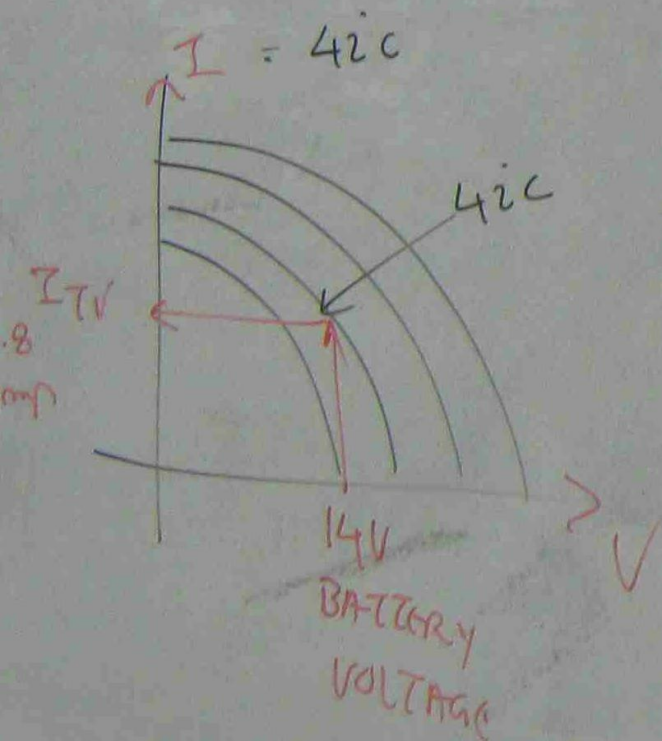 I = 42c
42c
ITV
.8
14V
BATTERY
VOLTAGE
V